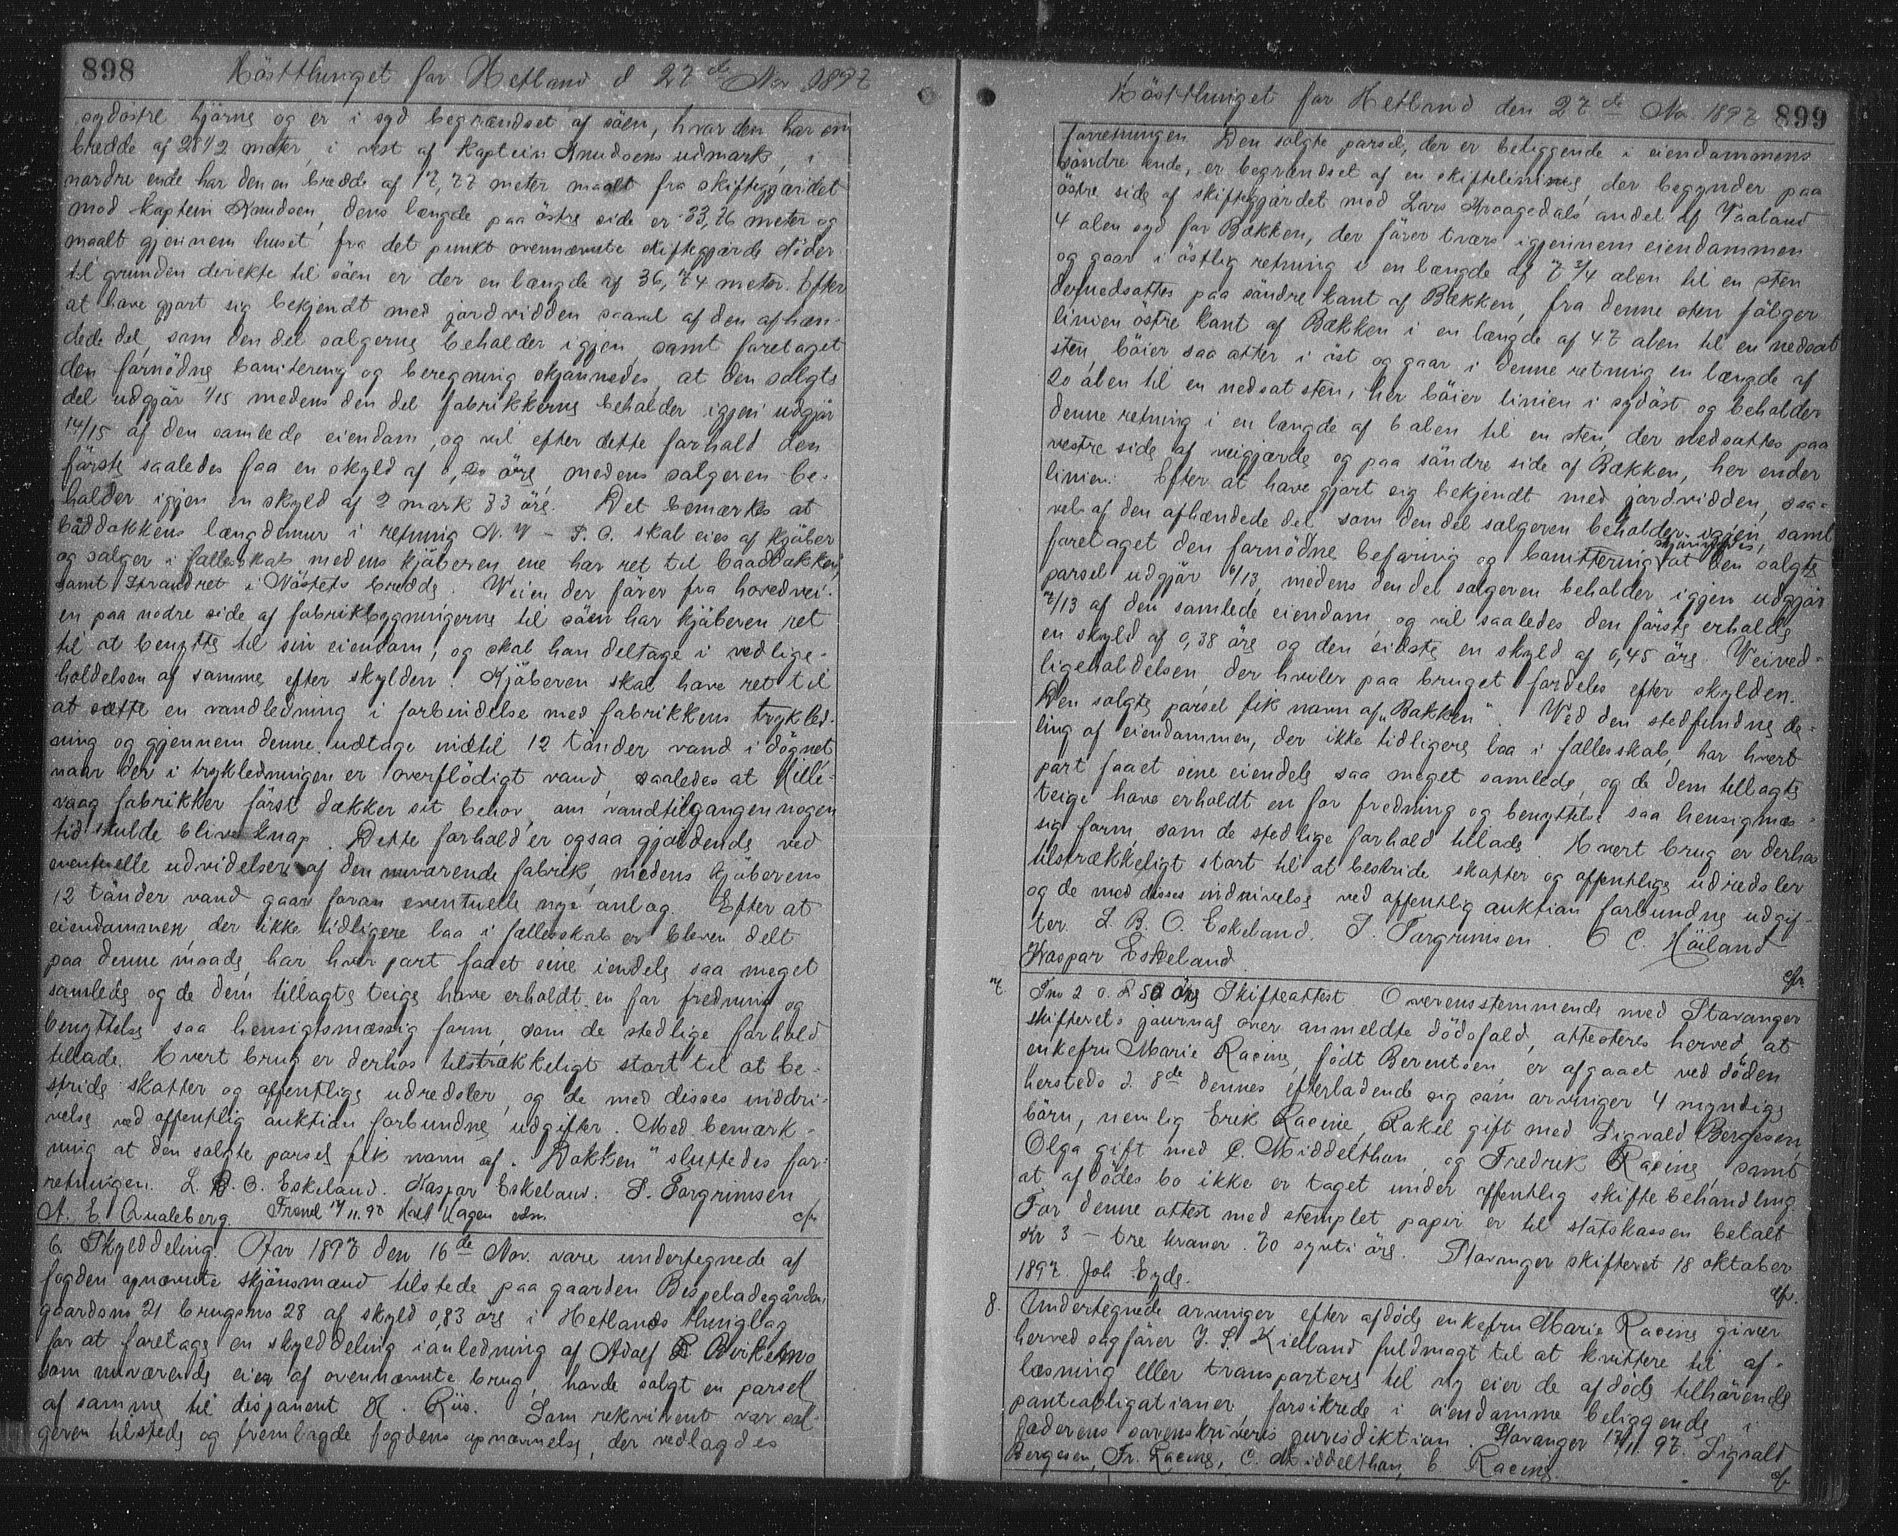 898 Høstthinget for Hetland d 27de Nov 1897
sydøstre hjørne og er i syd begrændset af søen, hvor den har en
bredde af 28 1/2 meter, i vest af Kaptein Knudsens udmark, i
nordre ende har den en bredde af 17,77 meter maalt fra skiftegjærdet
mod Kaptein Knudsen, dens længde paa østre side er 33,26 meter og
maalt gjennem huset, fra det punkt ovennævnte skiftegjærde støder
til grunden direkte til søen er der en længde af 36,74 meter. Efter
at have gjort sig bekjendt med jordvidden saavel af den afhæn-
dede del, som den del sælgerne beholder igjen, samt foretaget
den fornødne bonitering og beregning skjønnedes, at den solgte
del udgjør 1/15 medens den del fabrikkerne beholder igjen udgjør
14/15 af den samlede eiendom, og vil efter dette forhold den
første saaledes faa en skyld af 0,20 øre, medens sælgeren be-
holder igjen en skyld af 2 mark 73 øre. Det bemærkes at
baaddokkens længdemur i retning N.V - S.O. skal eies af kjøber
og sælger i fællesskab medens kjøberen ene har ret til baaddokken,
samt strandret i Nøstets bredde. Veien der fører fra hovedvei-
en paa nedre side af fabrikbygningerne til søen har kjøberen ret
til at benytte til sin eiendom, og skal han deltage i vedlige-
holdelsen af samme efter skylden. Kjøberen skal have ret til
at sætte en vandledning i forbindelse med fabrikkens trykled-
ning og gjennem denne udtage indtil 12 tønder vand i døgnet
naar der i trykledningen er overflødigt vand, saaledes at Hille-
vaag fabrikker først dækker sit behov, om vandtilgangen nogen
tid skulde blive knap. Dette forhold er ogsaa gjældende ved
eventuelle udvidelser af den nuværende fabrik, medens kjøberens
12 tønder vand gaar foran eventuelle nye anlæg. Efter at
eiendommen, der ikke tidligere laa i fællesskab er bleven delt
paa denne maade, har hver part faaet sine eiendele saa meget
samlede og de dem tillagte teige have erholdt en for fredning og
benyttelse saa hensigtsmæssig form, som de stedlige forhold
tillade. Hvert brug er derhos tilstrækkeligt stort til at be-
stride skatter og offentlige udredsler, og de med disses inddri-
velse ved offentlig auktion forbundne udgifter. Med bemærk-
ning at den solgte parsel fik navn af "Dokken" sluttedes for-
retningen. L. B. O. Eskeland. Kaspar Eskeland. S. Torgrimsen
A. E. Qualeberg. Freml 17/11.97 Kort Hagen edsv.
6. Skylddeling. Aar 1897 den 16de Nov. vare undertegnede af
fogden opnævnte skjønsmænd tilstede paa gaarden Bispeladegården
gaardsno 21 brugsno 28 af skyld 0,83 øre i Hetlands thinglag
for at foretage en skylddeling i anledning af Adolf Birkemo
som nuværende eier af ovennævnte brug, havde solgt en parsel
af samme til disponent H. Riis. Som rekvirent var sæl-
geren tilstede og fremlagde fogdens opnævnelse, der vedlagdes
Høstthinget for Hetland den 27de Nov. 1897 899
forretningen. Den solgte parsel, der er beliggende i eiendommens
søndre ende, er begrændset af en skiftelinie, der begynder paa
østre side af skiftegjærdet mod Lars Kroagedals andel af Vaaland
4 alen syd for Bækken, der fører tværs igjennem eiendommen
og gaar i østlig retning i en længde af 7 3/4 alen til en sten
dernedsattes paa søndre kant af Bækken, fra denne sten følger
linien østre kant af Bækken i en længde af 47 alen til en nedsat
sten, bøier saa atter i øst og gaar i denne retning en længde af
20 alen til en nedsat sten, her bøier linien i sydøst og beholder
denne retning i en længde af 6 alen til en sten, der nedsattes paa
vestre side af veigjærde og paa søndre side af Bækken, her ender
linien. Efter at have gjort sig bekjendt med jordvidden, saa-
vel af den afhændede del, som den del sælgeren beholder igjen, samt
foretaget den fornødne befaring og bonittering skjønnedes, at den solgte
parsel udgjør 6/13, medens den del sælgeren beholder igjen udgjør
7/13 af den samlede eiendom, og vil saaledes den første erholde
en skyld af 0,38 øre og den sidste en skyld af 0,45 øre. Veived-
ligeholdelsen, der hviler paa bruget fordeles efter skylden.
Den solgte parsel fik navn af "Bakken". Ved den stedfundne de-
ling af eiendommen, der ikke tidligere laa i fællesskab, har hvert
part faaet sine eiendele saa meget samlede, og de dem tillagte
teige have erholdt en for fredning og benyttelse saa hensigtmæs-
sig form, som de stedlige forhold tillade. Hvert brug er derhos
tilstrækkeligt stort til at bestride skatter og offentlige udredsler
og de med disses inddrivelse ved offentlig auktion forbundne udgif-
ter. L. B. O. Eskeland. S. Torgrimsen. O C. Høiland
Kaspar Eskeland.
7. Ino 2 0. Skifteattest. Overensstemmende med Stavanger
skifterets journal over anmeldte dødsfald, attesteres herved at
enkefru Marie Racine, født Berentsen, er afgaaet ved døden
hersteds d. 8de dennes efterladende sig som arvinger 4 myndige
børn, nemlig Erik Racine, Rakel gift med Sigvald Bergesen,
Olga gift med C. Middelthon, og Fredrik Racine, samt
at afdødes bo ikke er taget under offentlig skiftebehandling.
For denne attest med stemplet papir er til statskassen betalt
Kr 3 - tre kroner 70 sytti øre. Stavanger skifteret 18 oktober
1897. Joh Eyde.
8. Undertegnede arvinger efter afdøde enkefru Marie Racine giver
herved sagfører J. S. Kielland fuldmagt til at kvittere til af-
læsning eller transportere til ny eier de afdøde tilhørende
panteobligationer forsikrede i eiendomme beliggende i
Jæderens sorenskriveris jurisdiktion. Stavanger 17/11 97. Sigvald
Bergesen, Fr. Racine, C. Middelthon, E. Racine.